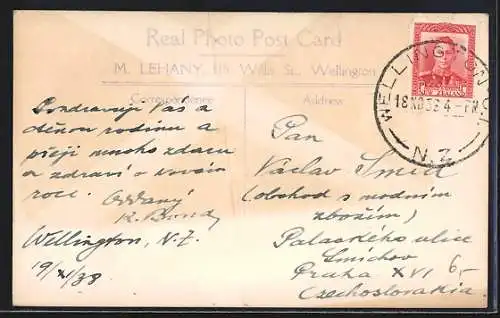 Real Photo Post Card
M. LEHANY, Willis St., Wellington
Correspondence
Address
WELLINGTON
18 NO 38 4 - PM
N.Z.
NEW ZEALAND
Pozdravuji Vás a
děnou rodinu a
přeji mnoho zdaru
a zdraví v novém
roce. Oddaný
K.
Wellington, N.Z.
19/XI/38
Pan
Václav
(obchod s modním
zbožím)
Palackého ulice
Smíchov
Praha XVI
Czechoslovakia
6,-